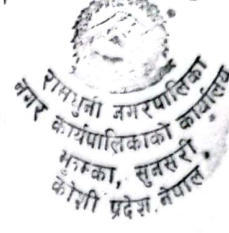 रामधुनी नगरपालिका
नगर कार्यपालिकाको कार्यालय
भुम्का, सुनसरी
कोशी प्रदेश, नेपाल